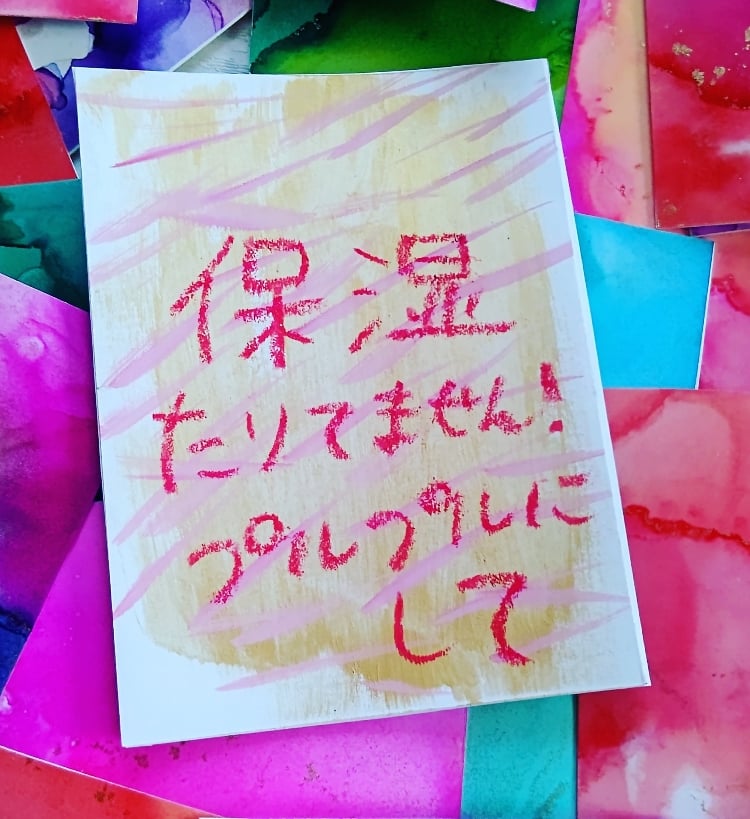 保湿
たりてません!
プルプルに
して